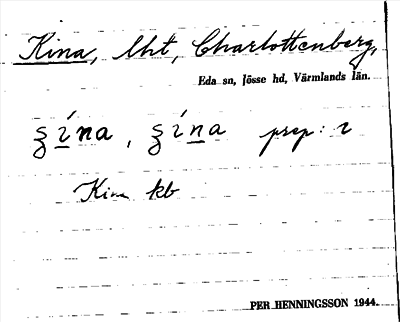 Kina, lht, Charlottenberg,
Eda sn, Jösse hd, Värmlands län.
ʒína, ʒína prep: i
Kina kb
PER HENNINGSSON 1944.